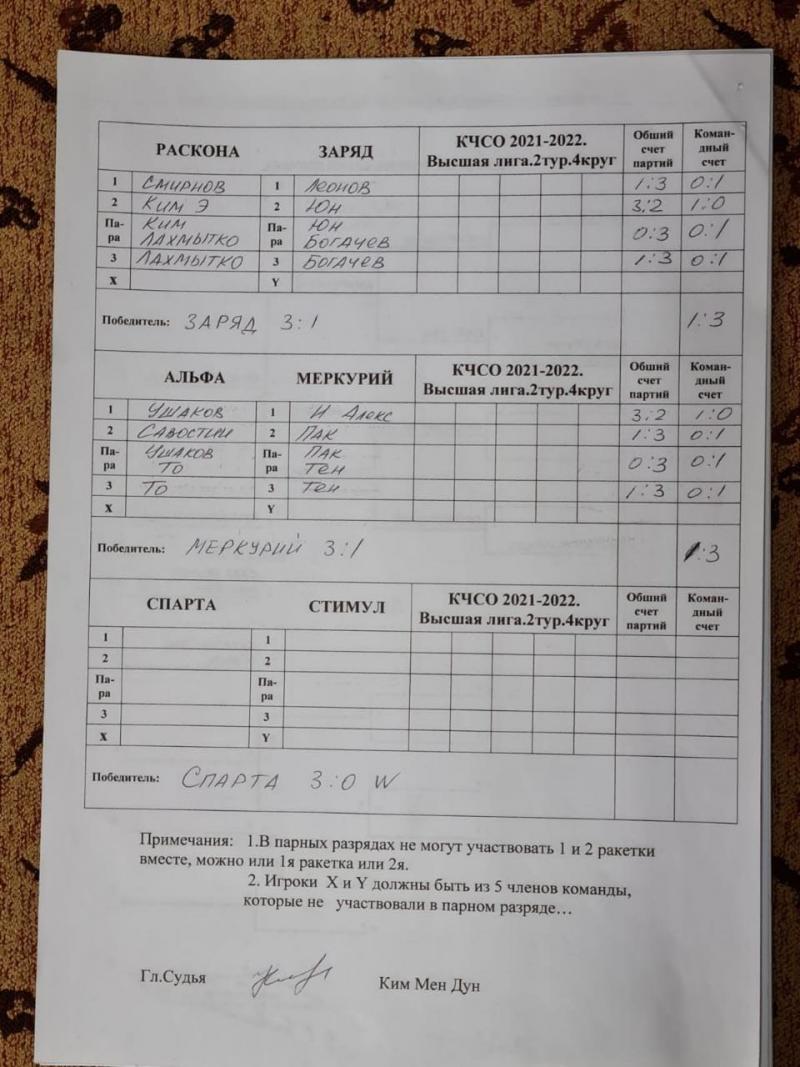 РАСКОНА ЗАРЯД КЧСО 2021-2022. Высшая лига.2тур.4круг Общий счет партий Коман-дный счет
1 СМИРНОВ 1 ЛЕОНОВ 1:3 0:1
2 КИМ Э 2 ЮН 3:2 1:0
Па-ра КИМ ЛАХМЫТКО Па-ра ЮН БОГАЧЕВ 0:3 0:1
3 ЛАХМЫТКО 3 БОГАЧЕВ 1:3 0:1
X Y
Победитель: ЗАРЯД 3:1 1:3
АЛЬФА МЕРКУРИЙ КЧСО 2021-2022. Высшая лига.2тур.4круг Общий счет партий Коман-дный счет
1 УШАКОВ 1 И АЛЕКС 3:2 1:0
2 САВОСТИН 2 ПАК 1:3 0:1
Па-ра УШАКОВ ТО Па-ра ПАК ТЕН 0:3 0:1
3 ТО 3 ТЕН 1:3 0:1
X Y
Победитель: МЕРКУРИЙ 3:1 1:3
СПАРТА СТИМУЛ КЧСО 2021-2022. Высшая лига.2тур.4круг Общий счет партий Коман-дный счет
1 1
2 2
Па-ра Па-ра
3 3
X Y
Победитель: СПАРТА 3:0 W
Примечания: 1.В парных разрядах не могут участвовать 1 и 2 ракетки
вместе, можно или 1я ракетка или 2я.
2. Игроки X и Y должны быть из 5 членов команды,
которые не участвовали в парном разряде…
Гл.Судья Ким Мен Дун